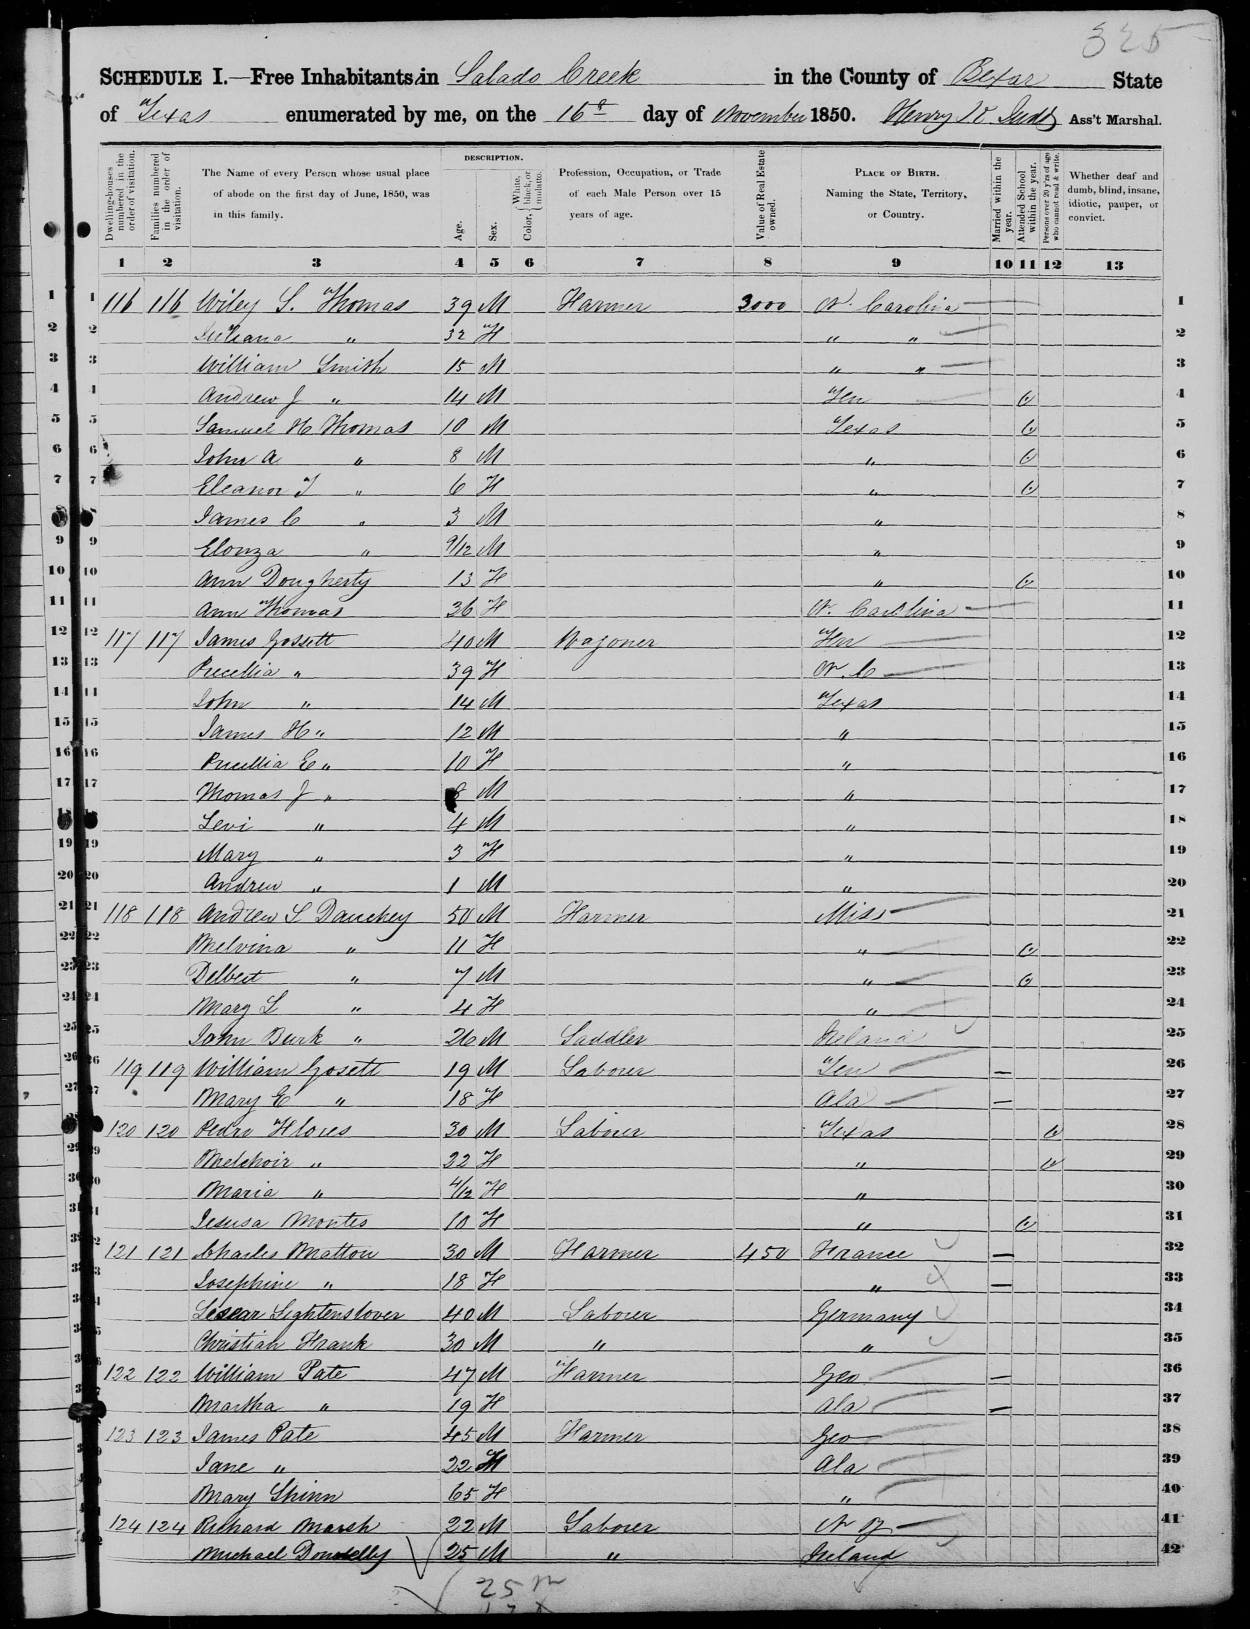 325
SCHEDULE I.—Free Inhabitants in Salado Creek in the County of Bexar State
of Texas enumerated by me, on the 16th day of November 1850. Henry Ass't Marshal.
Dwelling-houses numbered in the order of visitation.
Families numbered in the order of visitation.
The Name of every Person whose usual place of abode on the first day of June, 1850, was in this family.
DESCRIPTION.
Age.
Sex.
Color, { White, black, or mulatto.
Profession, Occupation, or Trade of each Male Person over 15 years of age.
Value of Real Estate owned.
PLACE OF BIRTH. Naming the State, Territory, or Country.
Married within the year.
Attended School within the year.
Persons over 20 y'rs of age who cannot read & write.
Whether deaf and dumb, blind, insane, idiotic, pauper, or convict.
1 2 3 4 5 6 7 8 9 10 11 12 13
1 116 116 Wiley S. Thomas 39 M Farmer 3000 N. Carolina 1
2 " 32 F " " 2
3 William Smith 15 M " " 3
4 Andrew J " 14 M Ten 4
5 Samuel H Thomas 10 M Texas 5
6 John A " 8 M " 6
7 Eleanor T " 6 F " 7
8 James C " 3 M " 8
9 Elonza " 9/12 M " 9
10 Ann Dougherty 13 F " 10
11 Ann Thomas 36 F N. Carolina 11
12 117 117 James Gossett 40 M Wagoner Ten 12
13 " 39 F N. C 13
14 John " 14 M Texas 14
15 James H " 12 M " 15
16 E " 10 F " 16
17 Thomas J " M " 17
18 Levi " 4 M " 18
19 Mary " 3 F " 19
20 Andrew " 1 M " 20
21 118 118 Andrew S Dauchey 50 M Farmer Miss 21
22 Melvina " 11 F " 22
23 Delbert " 7 M " 23
24 Mary L " 4 F " 24
25 John Burk " 26 M Saddler Ireland 25
26 119 119 William Gosett 19 M Laborer Ten — 26
27 Mary E " 18 F Ala — 27
28 120 120 Pedro Flores 30 M Laborer Texas 28
29 Melchoir " 22 F " 29
30 Maria " 4/12 F " 30
31 Jesusa Montes 10 F " 31
32 121 121 Charles Mattou 30 M Farmer 450 France — 32
33 Josephine " 18 F " — 33
34 Lightenstover 40 M Laborer Germany 34
35 Christian Frank 30 M " " 35
36 122 122 William Pate 47 M Farmer Geo — 36
37 Martha " 19 F Ala — 37
38 123 123 James Pate 45 M Farmer Geo 38
39 Jane " 22 F Ala 39
40 Mary Shinn 65 F " 40
41 124 124 Richard Marsh 22 M Laborer N Y 41
42 Michael Donnelly 25 M " Ireland 42
25 m